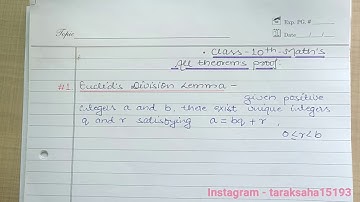 Exp. PG #
Topic
Date / /
• Class-10th-Math's
All theorem's proof.
#1 Euclid's Division Lemma -
given positive
integers a and b, there exist unique integers
q and r satisfying a = bq + r,
0 < r < b
Instagram - taraksaha15193